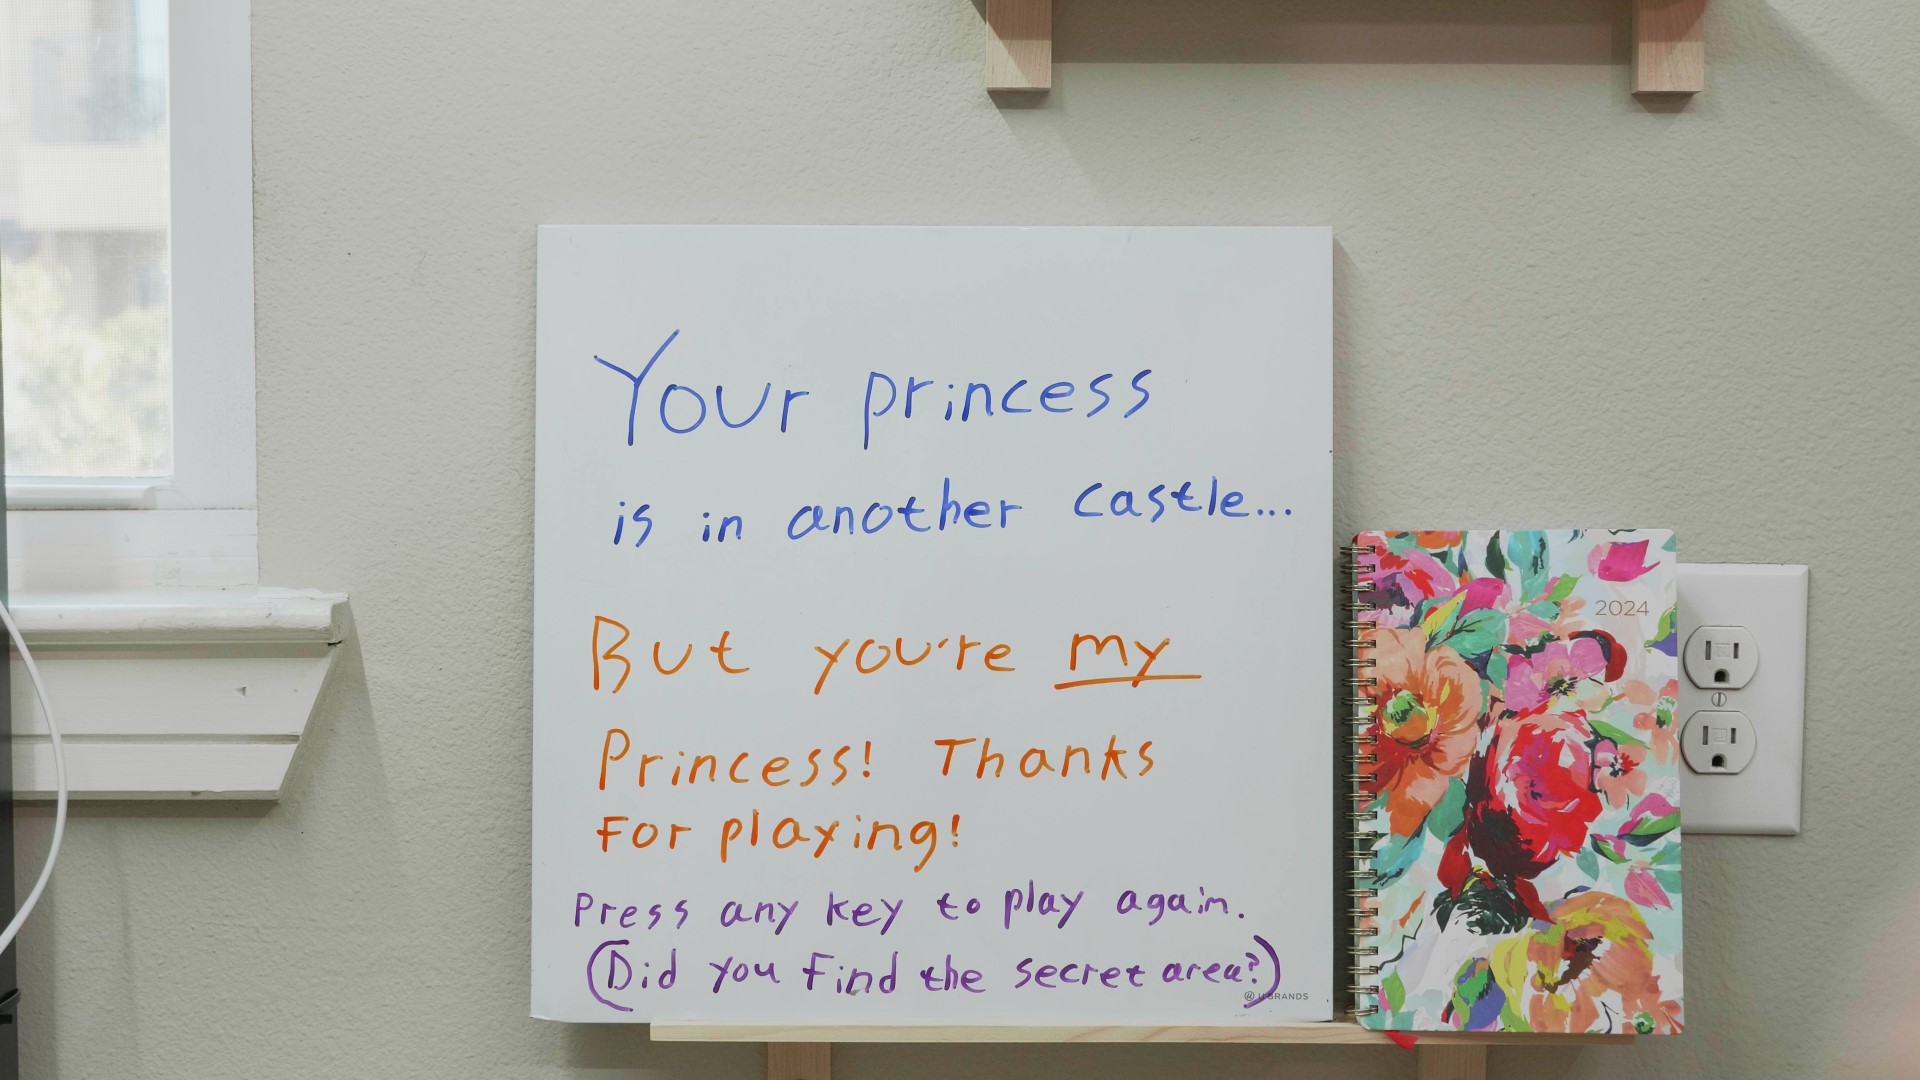 Your princess
is in another castle...
But you're my
Princess! Thanks
For playing!
Press any key to play again.
(Did you find the secret area?)
U BRANDS
2024